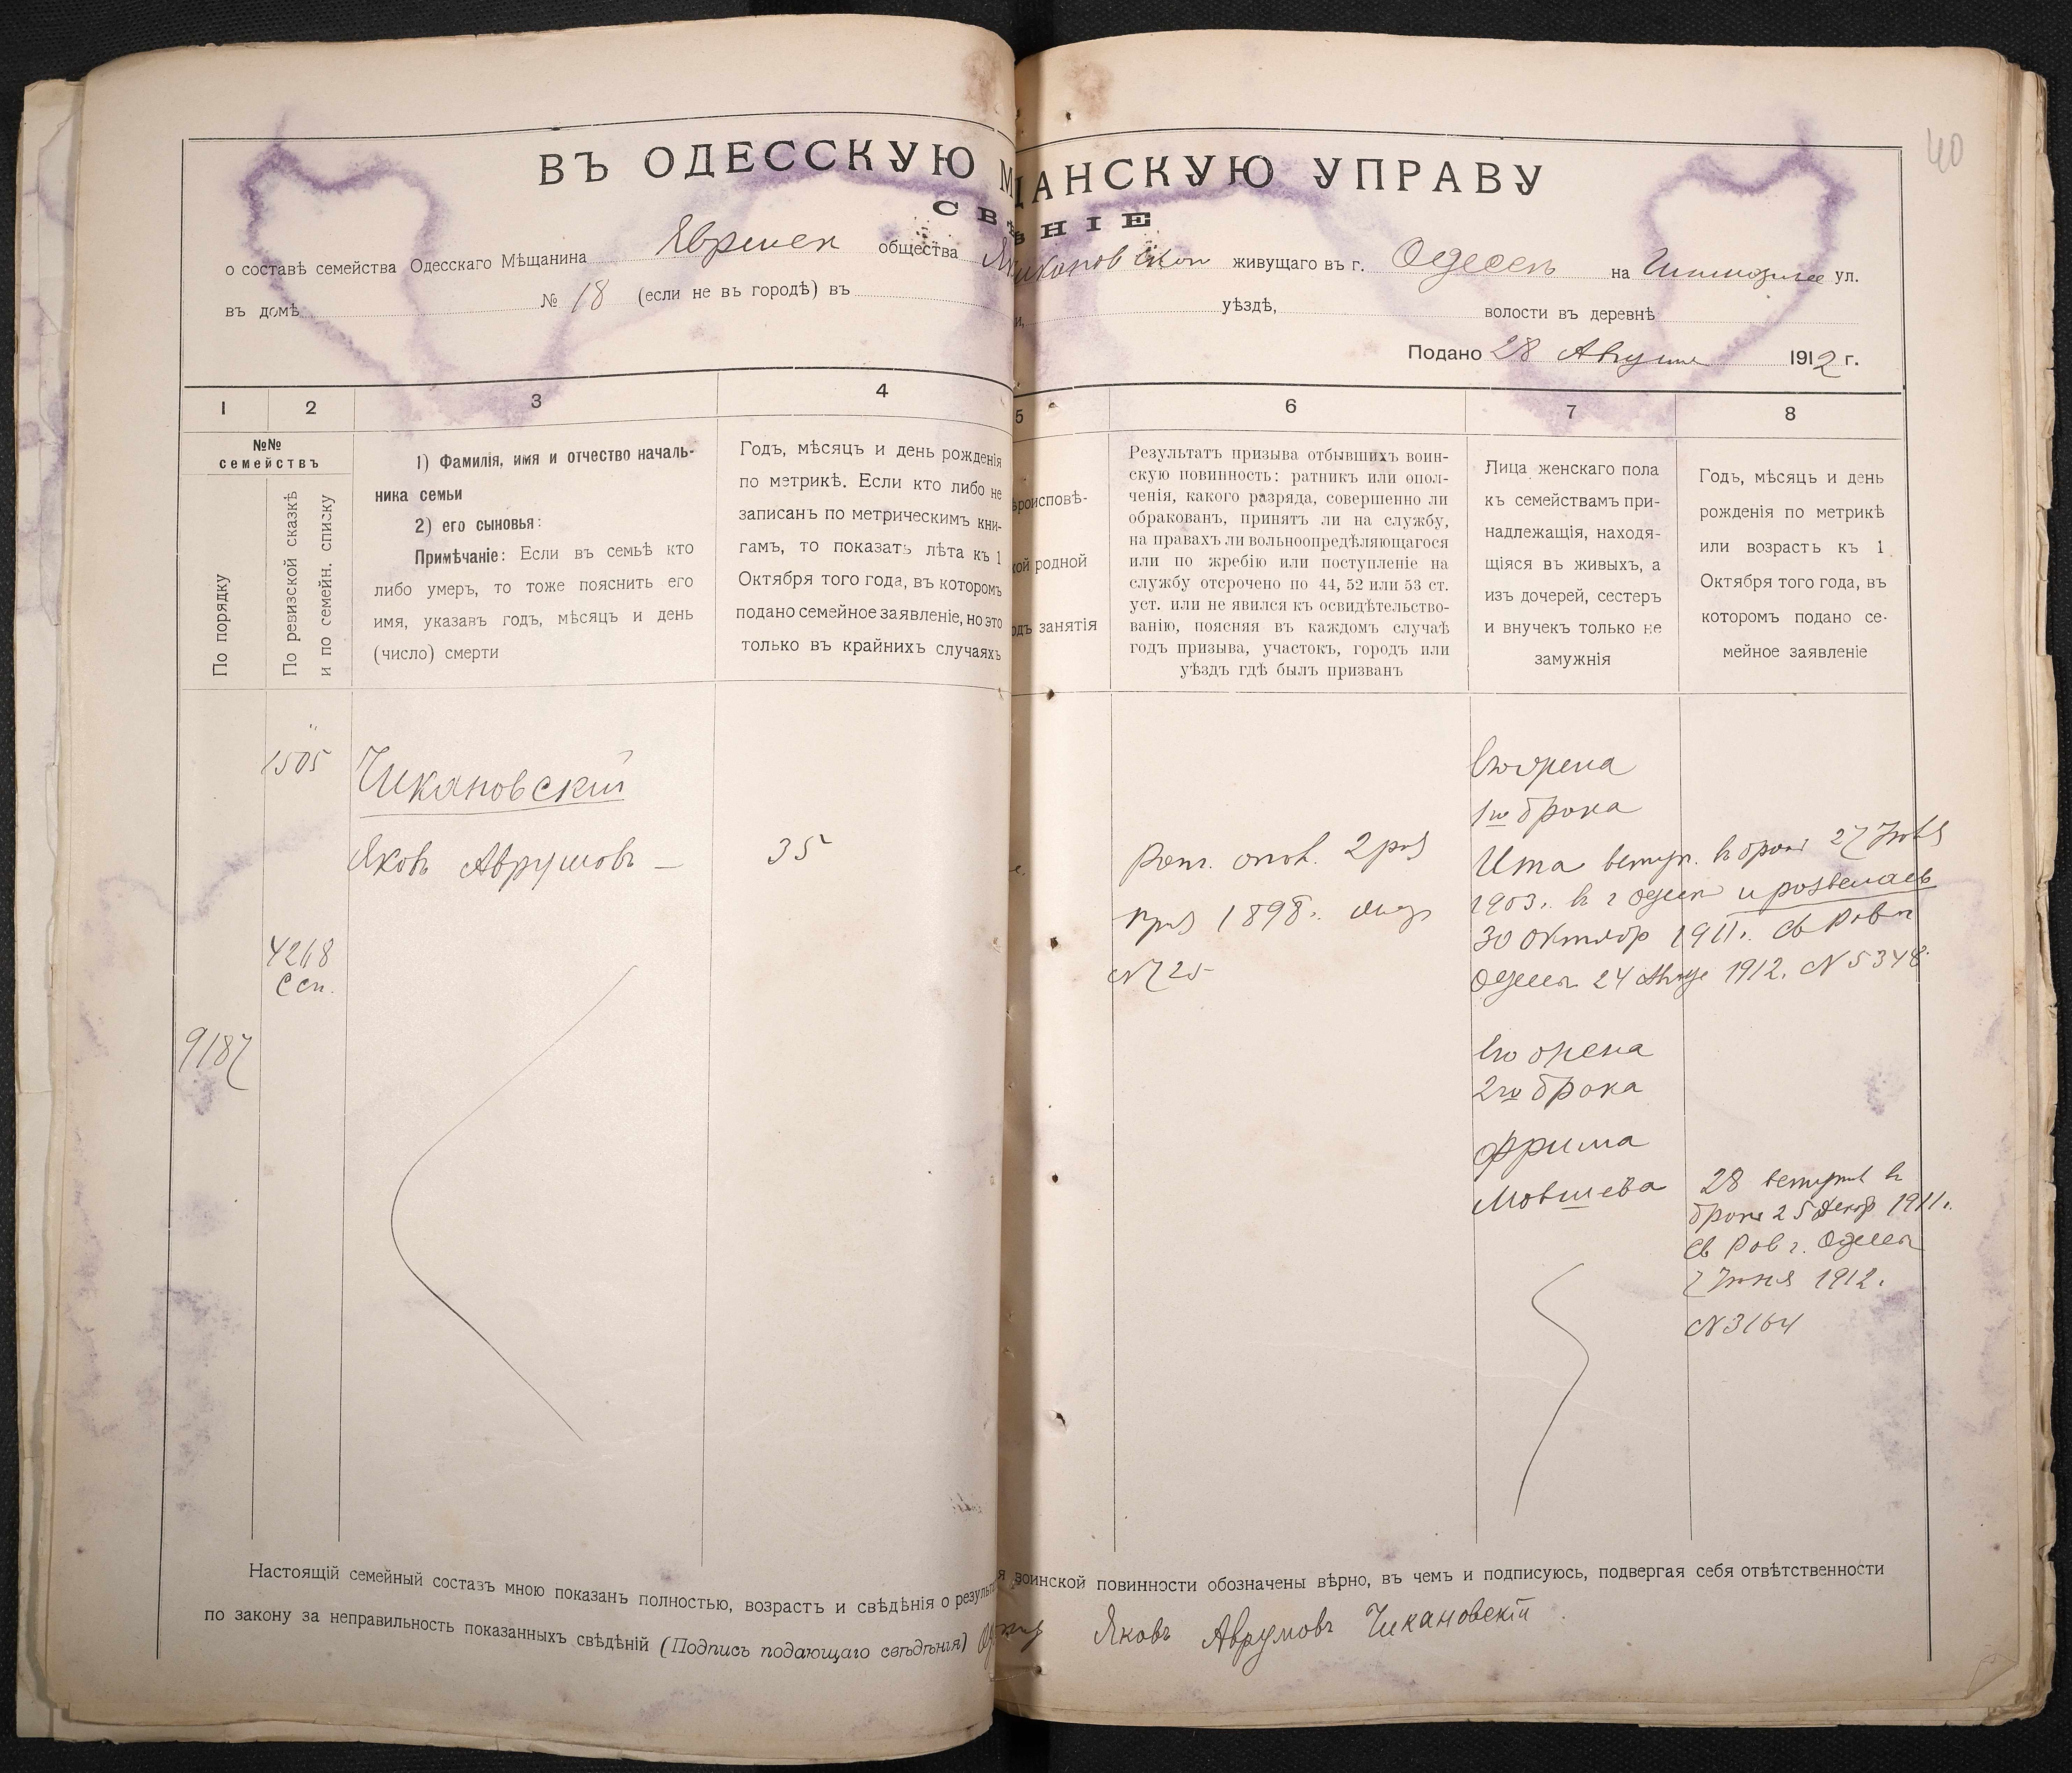 40
ВЪ ОДЕССКУЮ М ЩАНСКУЮ УПРАВУ
СВѢ ѢНІЕ
о составѣ семейства Одесскаго Мѣщанина общества живущаго въ г. Одессѣ на ул.
въ домѣ № 18 (если не въ городѣ) въ и, уѣздѣ, волости въ деревнѣ
Подано 28 Августа 1912 г.
1 2 3 4 5 6 7 8
№№
семействъ
По порядку
По ревизской сказкѣ
и по семейн. списку
1) Фамилія, имя и отчество началь-
ника семьи
2) его сыновья:
Примѣчаніе: Если въ семьѣ кто
либо умеръ, то тоже пояснить его
имя, указавъ годъ, мѣсяцъ и день
(число) смерти
Годъ, мѣсяцъ и день рожденія
по метрикѣ. Если кто либо не
записанъ по метрическимъ кни-
гамъ, то показать лѣта къ 1
Октября того года, въ которомъ
подано семейное заявленіе, но это
только въ крайнихъ случаяхъ
ѣроисповѣ-
кой родной
одъ занятія
Результатъ призыва отбывшихъ воин-
скую повинность: ратникъ или опол-
ченія, какого разряда, совершенно ли
обракованъ, принятъ ли на службу,
на правахъ ли вольноопредѣляющагося
или по жребію или поступленіе на
службу отсрочено по 44, 52 или 53 ст.
уст. или не явился къ освидѣтельство-
ванію, поясняя въ каждомъ случаѣ
годъ призыва, участокъ, городъ или
уѣздъ гдѣ былъ призванъ
Лица женскаго пола
къ семействамъ при-
надлежащія, находя-
щіяся въ живыхъ, а
изъ дочерей, сестеръ
и внучекъ только не
замужнія
Годъ, мѣсяцъ и день
рожденія по метрикѣ
или возрастъ къ 1
Октября того года, въ
которомъ подано се-
мейное заявленіе
1505
Чикановскій
Яковъ Аврумовъ — 35
4268
С сп.
9187
Рат. опол. 2 раз
1898г.
№ 725
его жена
1го брака
Ита вступ. в брак 27
1903г. в г Одессе и развелась
30 Октябр 1911г. Св Рав г
Одессы 24 1912. № 5348
его жена
2го брака
Фрима
Мовшева
28 вступил в
брак 25 Декабр 1911г.
Св Рав г. Одессы
7 Июня 1912.
№ 3164
Настоящій семейный составъ мною показанъ полностью, возрастъ и свѣдѣнія о результ я воинской повинности обозначены вѣрно, въ чемъ и подписуюсь, подвергая себя отвѣтственности
по закону за неправильность показанныхъ свѣдѣній (Подпись подающаго свѣдѣнія) Яковъ Аврумовъ Чикановскій